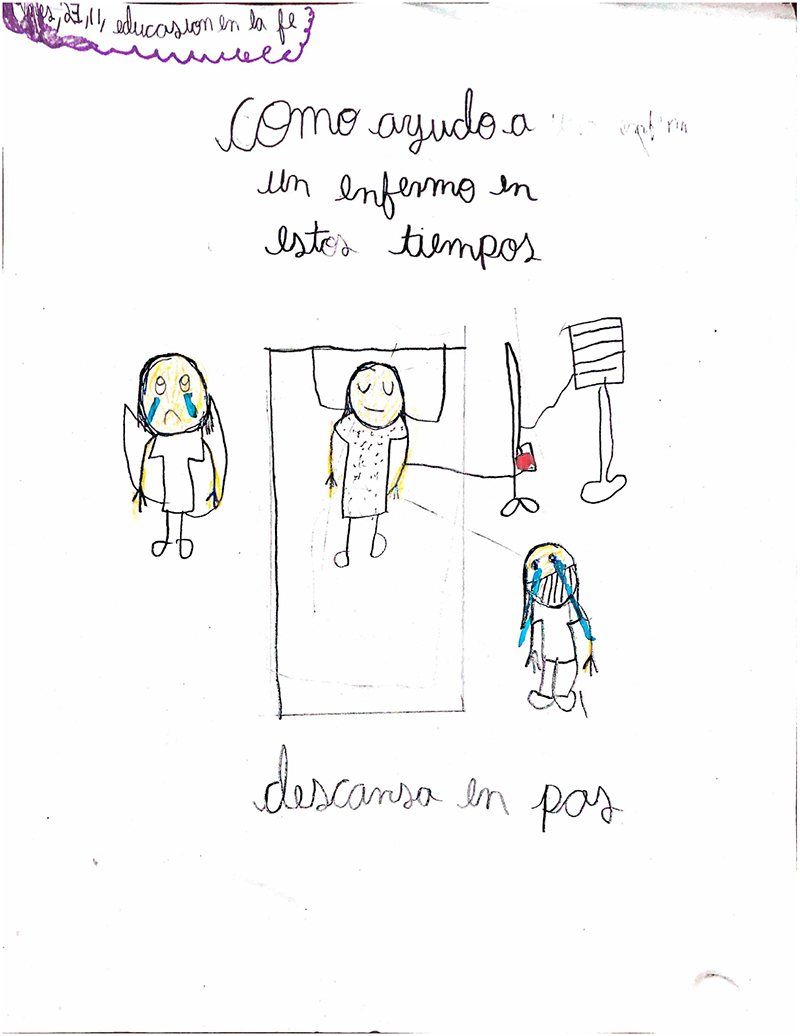 27, 11, educasion en la fe
COMO ayudo a
un enfermo en
estos tiempos
descansa en pas